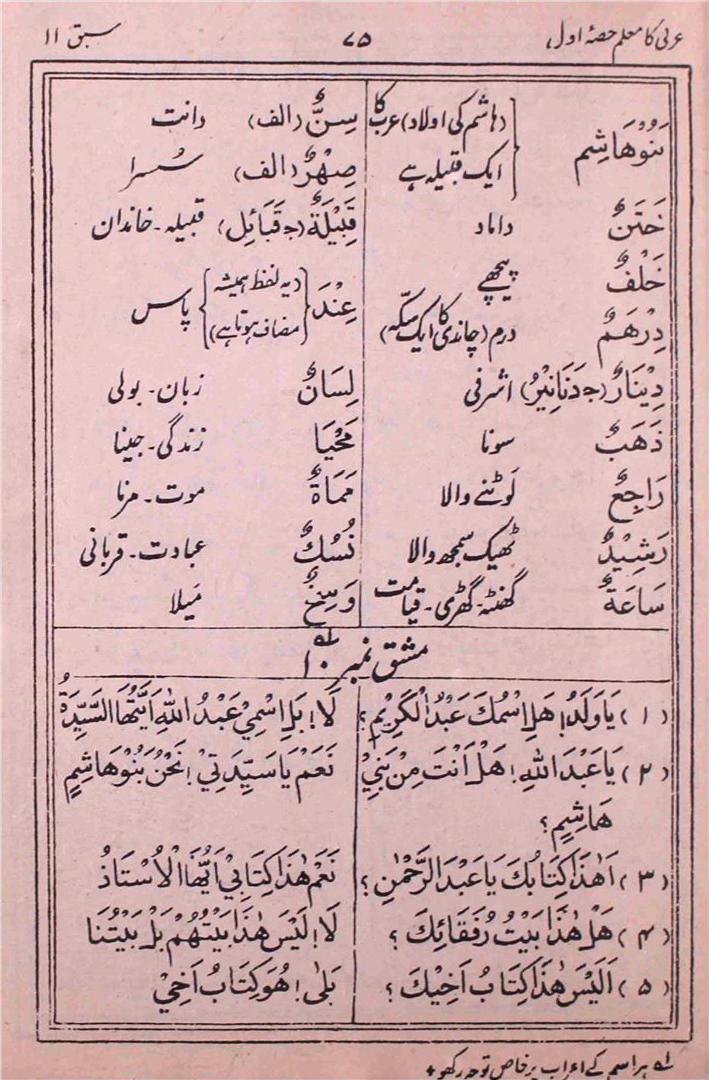 عربی کا معلم حصۂ اول ۷۵ سبق ۱۱
بَنُوْهَاشِم {(ہاشم کی اولاد) عرب کا
ایک قبیلہ ہے
خَتَنٌ داماد
خَلْفٌ پیچھے
دِرْهَمٌ درم (چاندی کا ایک سکّہ)
دِيْنَارٌ (ج دَنَانِيْرُ) اشرفی
ذَهَبٌ سونا
رَاجِعٌ لَوٹنے والا
رَشِيْدٌ ٹھیک سمجھ والا
سَاعَةٌ گھنٹہ۔ گھڑی۔ قیامت
سِنٌّ (الف) دانت
صِهْرٌ (الف) سُسرا
قَبِيْلَةٌ (ج قَبَائِل) قبیلہ۔ خاندان
عِنْدَ {(یہ لفظ ہمیشہ
مضاف ہوتا ہے)} پاس
لِسَانٌ زبان۔ بولی
مَحْيَا زندگی۔ جینا
مَمَاةٌ موت۔ مرنا
نُسُكٌ عبادت۔ قربانی
وَسِخٌ مَیلا
مشق نمبر ۱۰ ؎۱
(۱) يَا وَلَدُ! هَلِ اسْمُكَ عَبْدُ الْكَرِيْمِ؟ لَا! بَلِ اسْمِيْ عَبْدُ اللهِ اَيَّتُهَا السَّيِّدَةُ
(۲) يَا عَبْدَ اللهِ! هَلْ اَنْتَ مِنْ بَنِيْ نَعَمْ يَا سَيِّدَتِيْ! نَحْنُ بَنُوْ هَاشِمٍ
هَاشِمٍ؟
(۳) اَهٰذَا كِتَابُكَ يَا عَبْدَ الرَّحْمٰنِ؟ نَعَمْ هٰذَا كِتَابِيْ اَيُّهَا الْاُسْتَاذُ
(۴) هَلْ هٰذَا بَيْتُ رُفَقَائِكَ؟ لَا! لَيْسَ هٰذَا بَيْتُهُمْ بَلْ بَيْتُنَا
(۵) اَلَيْسَ هٰذَا كِتَابُ اَخِيْكَ؟ بَلٰى! هُوَ كِتَابُ اَخِيْ
؎۱ ہر اسم کے اعراب پر خاص توجہ رکھو +